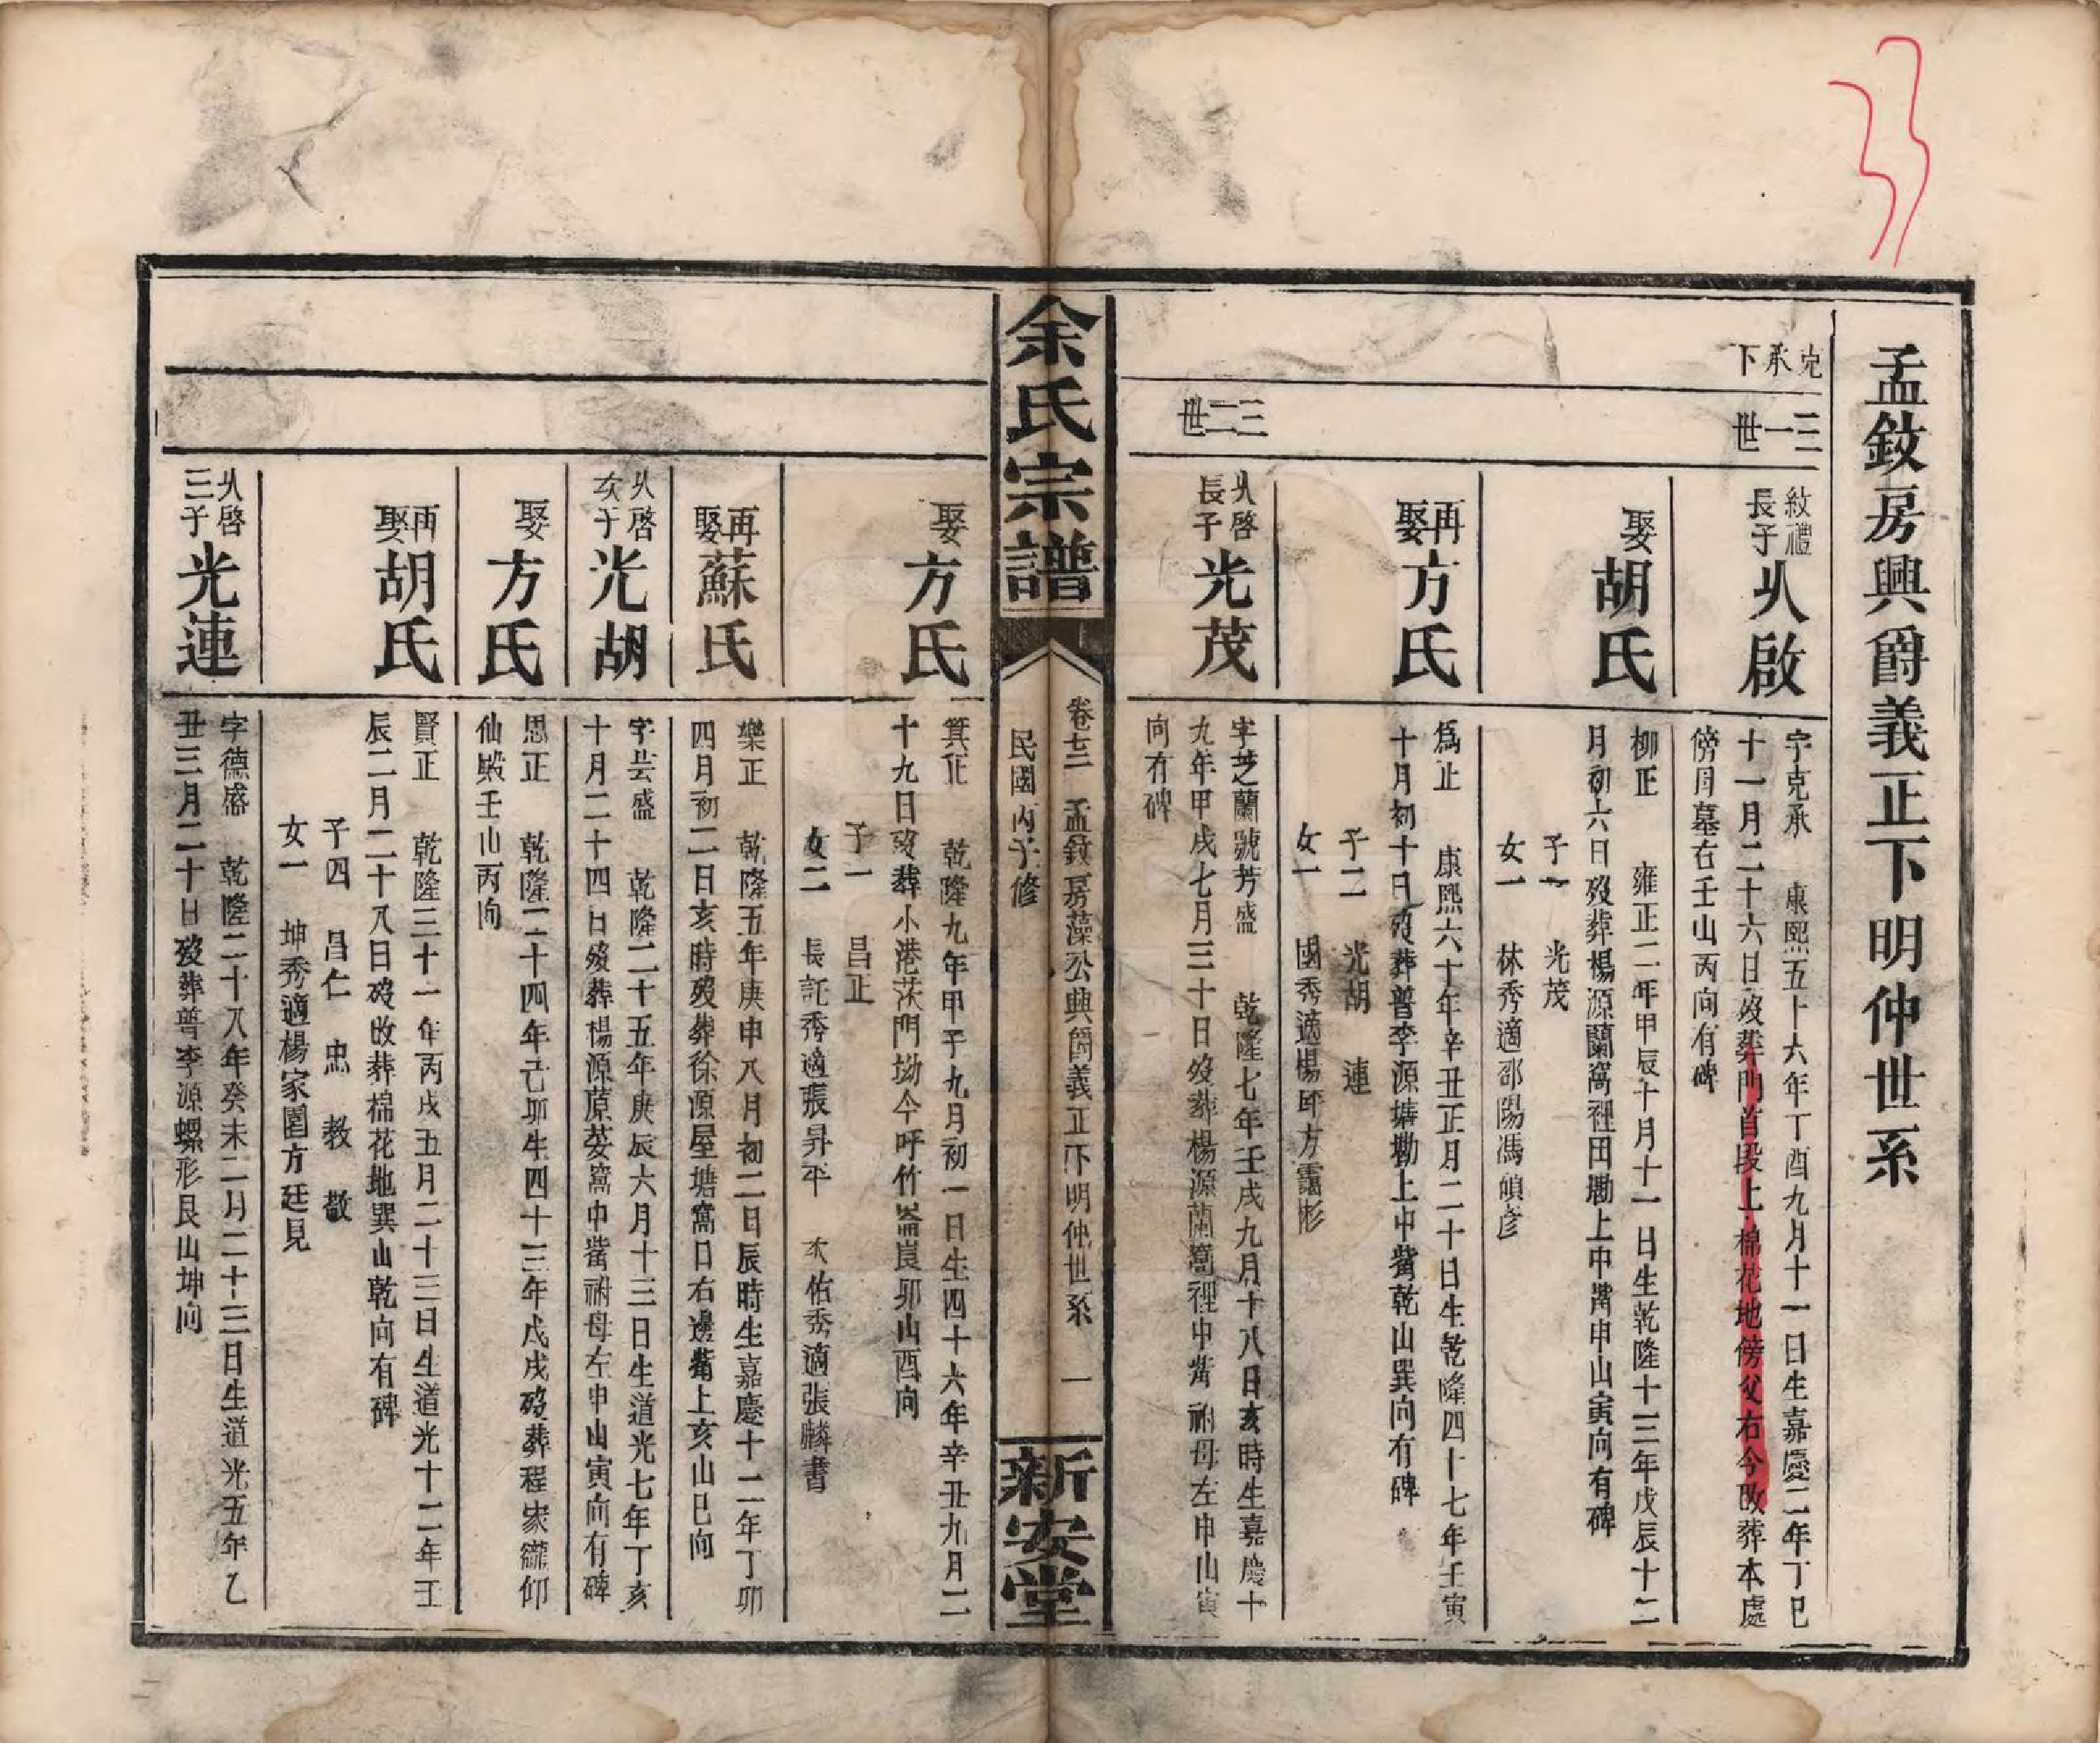 孟䥝房興爵義正下明仲世系
克承下
二一世
紋禮長子
㕥啟
字克承 康熙五十六年丁酉九月十一日生嘉慶二年丁巳
十一月二十六日歿葬門首段上棉花地傍父右今改葬本處
傍母墓右壬山丙向有碑
娶
胡氏
柳正 雍正二年甲辰十月十一日生乾隆十三年戊辰十二
月初六日歿葬楊源蘭窩裡田墈上中嘴申山寅向有碑
子一 光茂
女一 林秀適邵陽馮 彥
再娶
方氏
為正 康熙六十年辛丑正月二十日生乾隆四十七年壬寅
十月初十日歿葬普李源塘墈上中嘴乾山巽向有碑
子二 光胡 連
女一 國秀適楊 方靄彬
三二世
㕥啓長子
光茂
字芝蘭號芳盛 乾隆七年壬戌九月十八日亥時生嘉慶十
九年甲戌七月三十日歿葬楊源蘭窩裡中嘴祔母左申山寅
向有碑
余氏宗譜
卷七三 孟䥝房藻公興爵義正下明仲世系 一
民國丙子修
新安堂
娶
方氏
箕正 乾隆九年甲子九月初一日生四十六年辛丑九月二
十九日歿葬小港茨門坳今呼竹崙崀卯山酉向
子一 昌正
女二 長託秀適張昇平 次佑秀適張麟書
再娶
蘇氏
樂正 乾隆五年庚申八月初二日辰時生嘉慶十二年丁卯
四月初二日亥時歿葬徐源屋塘窩口右邊嘴上亥山巳向
㕥啓次子
光胡
字芸盛 乾隆二十五年庚辰六月十三日生道光七年丁亥
十月二十四日歿葬楊源 窩中嘴祔母左申山寅向有碑
娶
方氏
思正 乾隆二十四年己卯生四十三年戊戌歿葬程家 仰
仙殿壬山丙向
再娶
胡氏
賢正 乾隆三十一年丙戌五月二十三日生道光十二年壬
辰二月二十八日歿改葬棉花地巽山乾向有碑
子四 昌仁 忠 教 敬
女一 坤秀適楊家園方廷見
㕥啓三子
光連
字德盛 乾隆二十八年癸未二月二十三日生道光五年乙
丑三月二十日歿葬普李源螺形艮山坤向